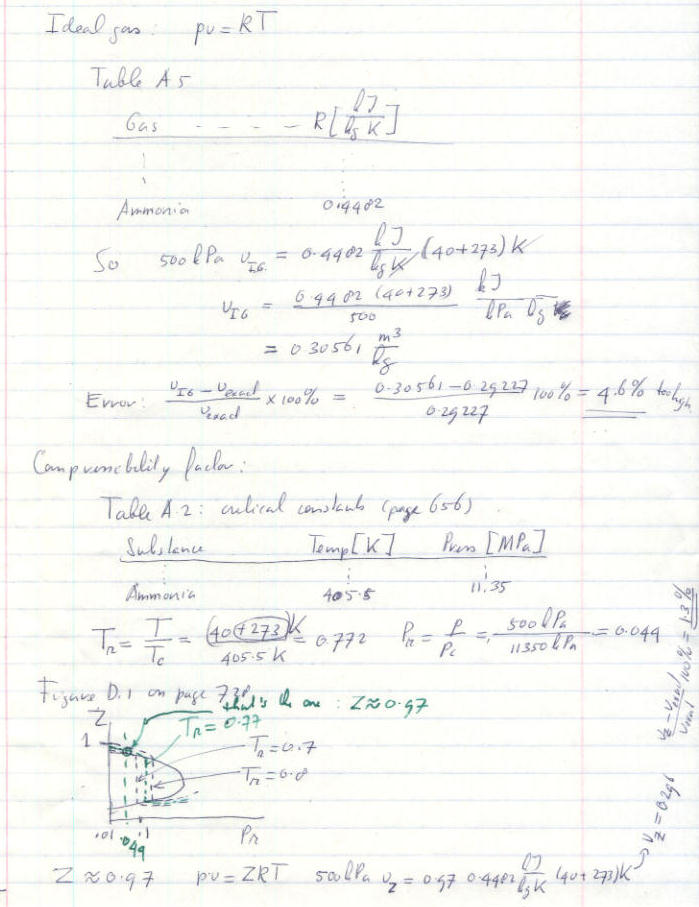 Ideal gas: pv = RT
Table A5
Gas - - - - R [kJ/kg K]
Ammonia 0.4882
So 500 kPa v_IG = 0.4882 kJ/kg K (40+273) K
v_IG = 0.4882 (40+273)/500 kJ/kPa kg
= 0.30561 m³/kg
Error: (v_IG - v_exact)/v_exact × 100% = (0.30561 - 0.29227)/0.29227 100% = 4.6% too high
Compressibility factor:
Table A.2: critical constants (page 656)
Substance Temp [K] Press [MPa]
Ammonia 405.5 11.35
T_R = T/T_c = (40+273)K/405.5 K = 0.772 P_R = P/P_c = 500 kPa/11350 kPa = 0.044
Figure D.1 on page
that's the one : Z ≈ 0.97
Z
T_R = 0.77
1
T_R = 0.7
T_R = 0.8
.01 .044 .1 P_R
Z ≈ 0.97 pv = ZRT 500 kPa v_Z = 0.97 0.4882 kJ/kg K (40+273)K
v_Z = 0.296 (v_Z - v_exact)/v_exact 100% = 1.3%